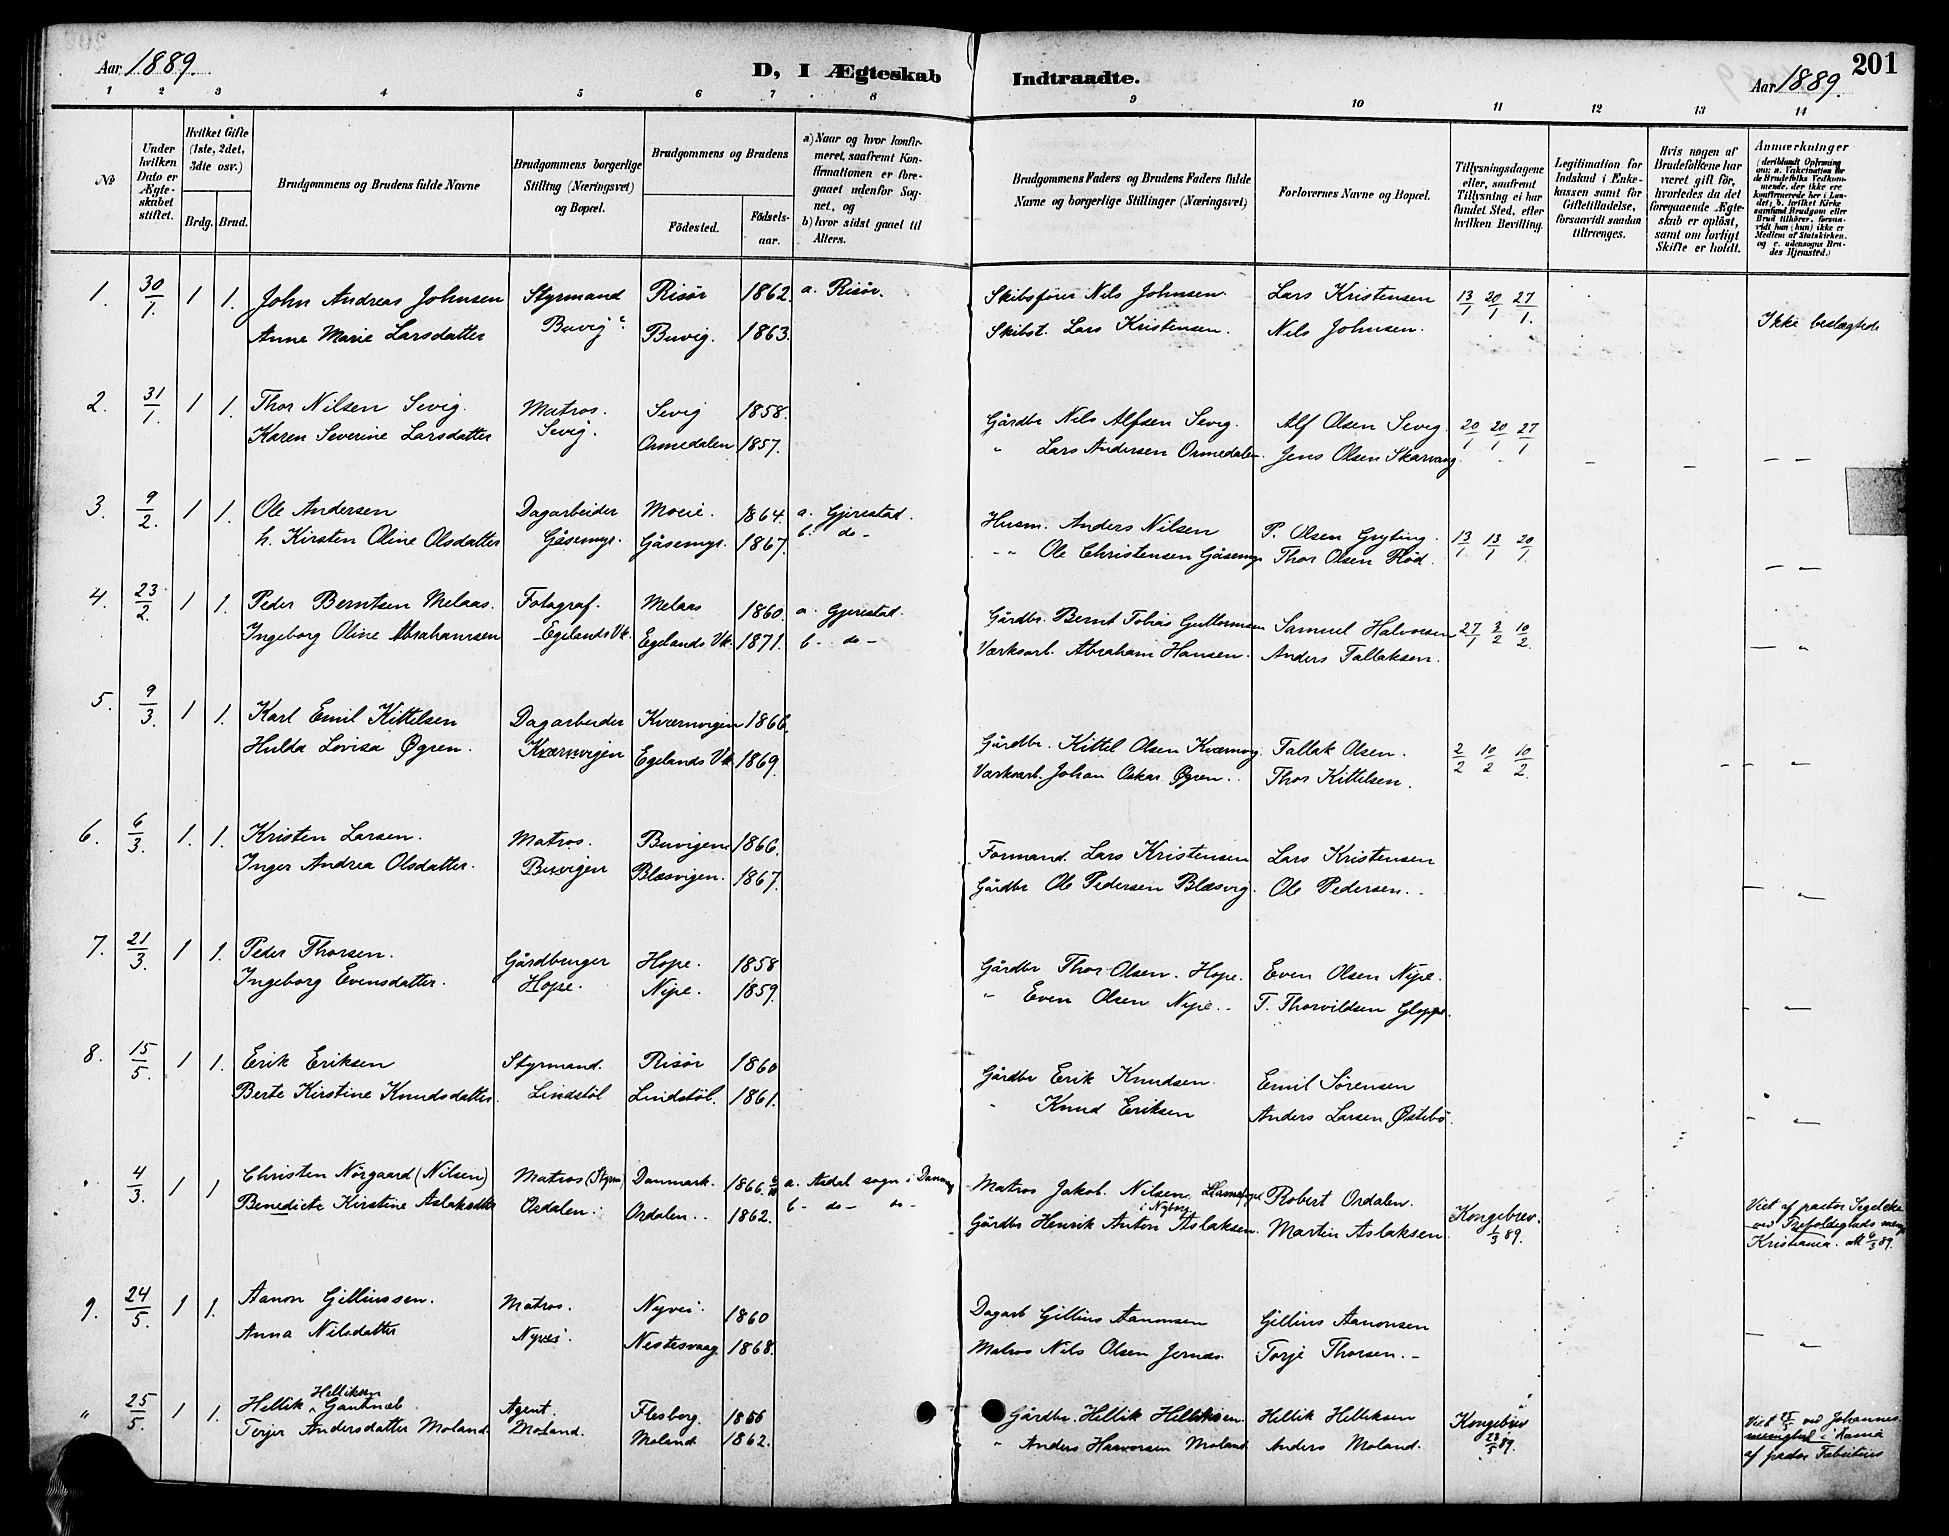 201
Aar 1889. D, I Ægteskab Indtraadte. Aar 1889.
1 2 3 4 5 6 7 8 9 10 11 12 13 14
No
Under hvilken Dato er Ægteskabet stiftet.
Hvilket Gifte (1ste, 2det, 3die osv.)
Brdg. Brud.
Brudgommens og Brudens fulde Navne
Brudgommens borgerlige Stilling (Næringsvei) og Bopæl.
Brudgommens og Brudens
Födested. Födselsaar.
a) Naar og hvor konfirmeret, saafremt Konfirmationen er foregaaet udenfor Sognet, og
b) hvor sidst gaaet til Alters.
Brudgommens Faders og Brudens Faders fulde Navne og borgerlige Stillinger (Næringsvei)
Forlovernes Navne og Bopæl.
Tillysningsdagene eller, saafremt Tillysning ei har fundet Sted, efter hvilken Bevilling.
Legitimation for Indskud i Enkekassen samt for Giftetilladelse, forsaavidt saadan tiltrænges.
Hvis nogen af Brudefolkene har været gift för, hvorledes da det foregaaende Ægteskab er oplöst, samt om lovligt Skifte er holdt.
Anmærkninger
(deriblandt Oplysning om: a. Vakcination for de Brudefolks Vedkommende, der ikke ere konfirmerede her i Landet; b. hvilket Kirkesamfund Brudgom eller Brud tilhörer, forsaavidt han (hun) ikke er Medlem af Statskirken, og c. udensogns Brudes Hjemsted.)
1. 30/1. 1 1. John Andreas Johnsen Styrmand Risør 1862. a. Risør. Skibsfører Nils Johnsen. Lars Kristensen 13/1 20/1 27/1.
Anne Marie Larsdatter Buvig. Buvig. 1863. Skibst. Lars Kristensen. Nils Johnsen. Ikke beslægtede
2. 31/1. 1 1. Thor Nilsen Sevig. Matros. Sevig 1858. Gårdbr Nils Alfsen Sevig. Alf Olsen Sevig. 20/1 20/1 27/1
Karen Severine Larsdatter Sevig. Ormedalen 1857. " Lars Andersen Ormedalen. Jens Olsen Skarvang. — —
3. 9/2. 1 1. Ole Andersen Dagarbeider Moeie. 1864. a. Gjerestad. Husm. Anders Nilsen P. Olsen Gryting. 13/1 13/1 20/1.
h. Kirsten Oline Olsdatter Gåsemyr. Gåsemyr. 1867. b. do - - " Ole Christensen Gåsemyr Thor Olsen Rød. — —
4. 23/2. 1 1. Peder Berntsen Melaas. Fotograf. Melaas 1860. a. Gjerestad. Gårdbr. Bernt Tobias Guttormsen Samuel Halvorsen 27/1 3/2 10/2.
Ingeborg Oline Abrahamsen Egelands Vk. Egelands Vk. 1871. b - do - Værksarb. Abraham Hansen. Anders Tallaksen. — "
5. 9/3. 1 1. Karl Emil Kittelsen Dagarbeider Kværnvigen 1866. Gårdbr. Kittel Olsen Kværnvig. Tallak Olsen. 2/2 10/2 10/2.
Hulda Lovisa Øgren. Kværnvigen Egelands Vk 1869. Værksarb. Johan Oskar Øgren. Thor Kittelsen. - - —
6. 6/3. 1. 1. Kristen Larsen. Matros. Buvigen 1866. Formand. Lars Kristensen Lars Kristensen
Inger Andrea Olsdatter. Buvigen Blæsvigen. 1867. Gårdbr Ole Pedersen Blæsvig. Ole Pedersen. — —
7. 21/3. 1 1. Peder Thorsen. Gårdbruger Hope. 1858 Gårdbr Thor Olsen. Hope. Even Olsen Nipe.
Ingeborg Evensdatter. Hope. Nipe. 1859. " Even Olsen Nipe. T. Thorvildsen Gloppe. - —
8. 15/5. 1 1. Erik Eriksen Styrmand. Risør 1860 Gårdbr Erik Knudsen. Emil Sørensen
Berte Kirstine Knudsdatter. Lindstöl Lindstöl. 1861. " Knud Eriksen Anders Larsen Østebö. - —
" 4/3. 1 1 Christen Nörgaard (Nilsen) Matros (Styrm) Danmark. 1866. a. Aidal sogn i Danm. Matros Jakob. Nilsen, i Nyborg Robert Ordalen. Kongebrev. 1/3 89.
Benedicte Kirstine Aslaksdtr Ordalen. Ordalen. 1862. b - do - do - Gårdbr Henrik Anton Aslaksen. Martin Aslaksen
Viet af pastor Segelcke ved Trefoldigheds menigh Kristiania. att 6/3 89.
9. 24/5. 1 1. Aanon Gilliussen. Matros. Nyvei. 1860 Dagarb Gillius Aanonsen Gillius Aanonsen
Anna Nilsdatter Nyvei. Nestesvaag 1868. Matros Nils Olsen Jernæs. Torje Thorsen. — "
" 25/5. 1 1. Hellik Helliksen Gautnæb Agent. Flesberg. 1856 Gårdbr. Hellik Helliksen Hellik Helliksen Kongebrev
Terjer Andersdatter Moland Moland. Moland. 1862. " Anders Haavorsen Moland Anders Moland. 23/5 89.
Viet 25/5 ved Johannes menighed i Kania af pastor Fabritius